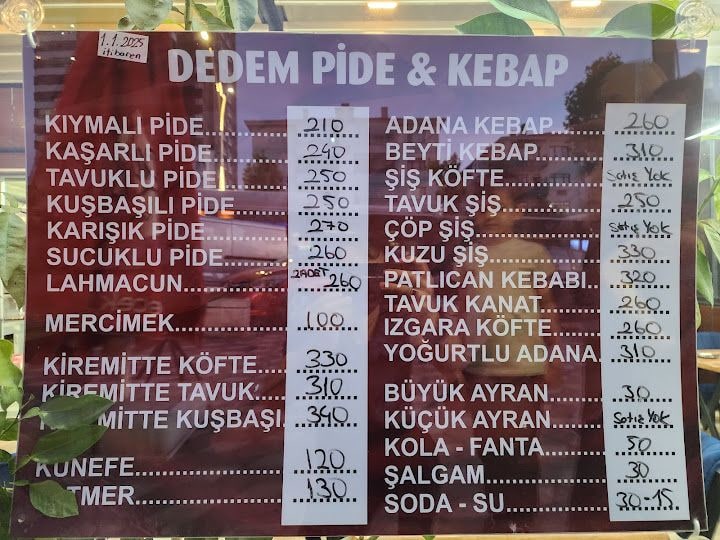 1.1.2025
itibaren
DEDEM PİDE & KEBAP
KIYMALI PİDE 210
KAŞARLI PİDE 240
TAVUKLU PİDE 250
KUŞBAŞILI PİDE 250
KARIŞIK PİDE 270
SUCUKLU PİDE 260
LAHMACUN 2 ADET 260
MERCİMEK 100
KİREMİTTE KÖFTE 330
KİREMİTTE TAVUK 310
KUŞBAŞI 340
KÜNEFE 120
130
ADANA KEBAP 260
BEYTİ KEBAP 310
ŞİŞ KÖFTE Satış Yok
TAVUK ŞİŞ 250
ÇÖP ŞİŞ Satış Yok
KUZU ŞİŞ 330
PATLICAN KEBABI 320
TAVUK KANAT 260
IZGARA KÖFTE 260
YOĞURTLU ADANA 310
BÜYÜK AYRAN 30
KÜÇÜK AYRAN Satış Yok
KOLA - FANTA 50
ŞALGAM 30
SODA - SU 30-15